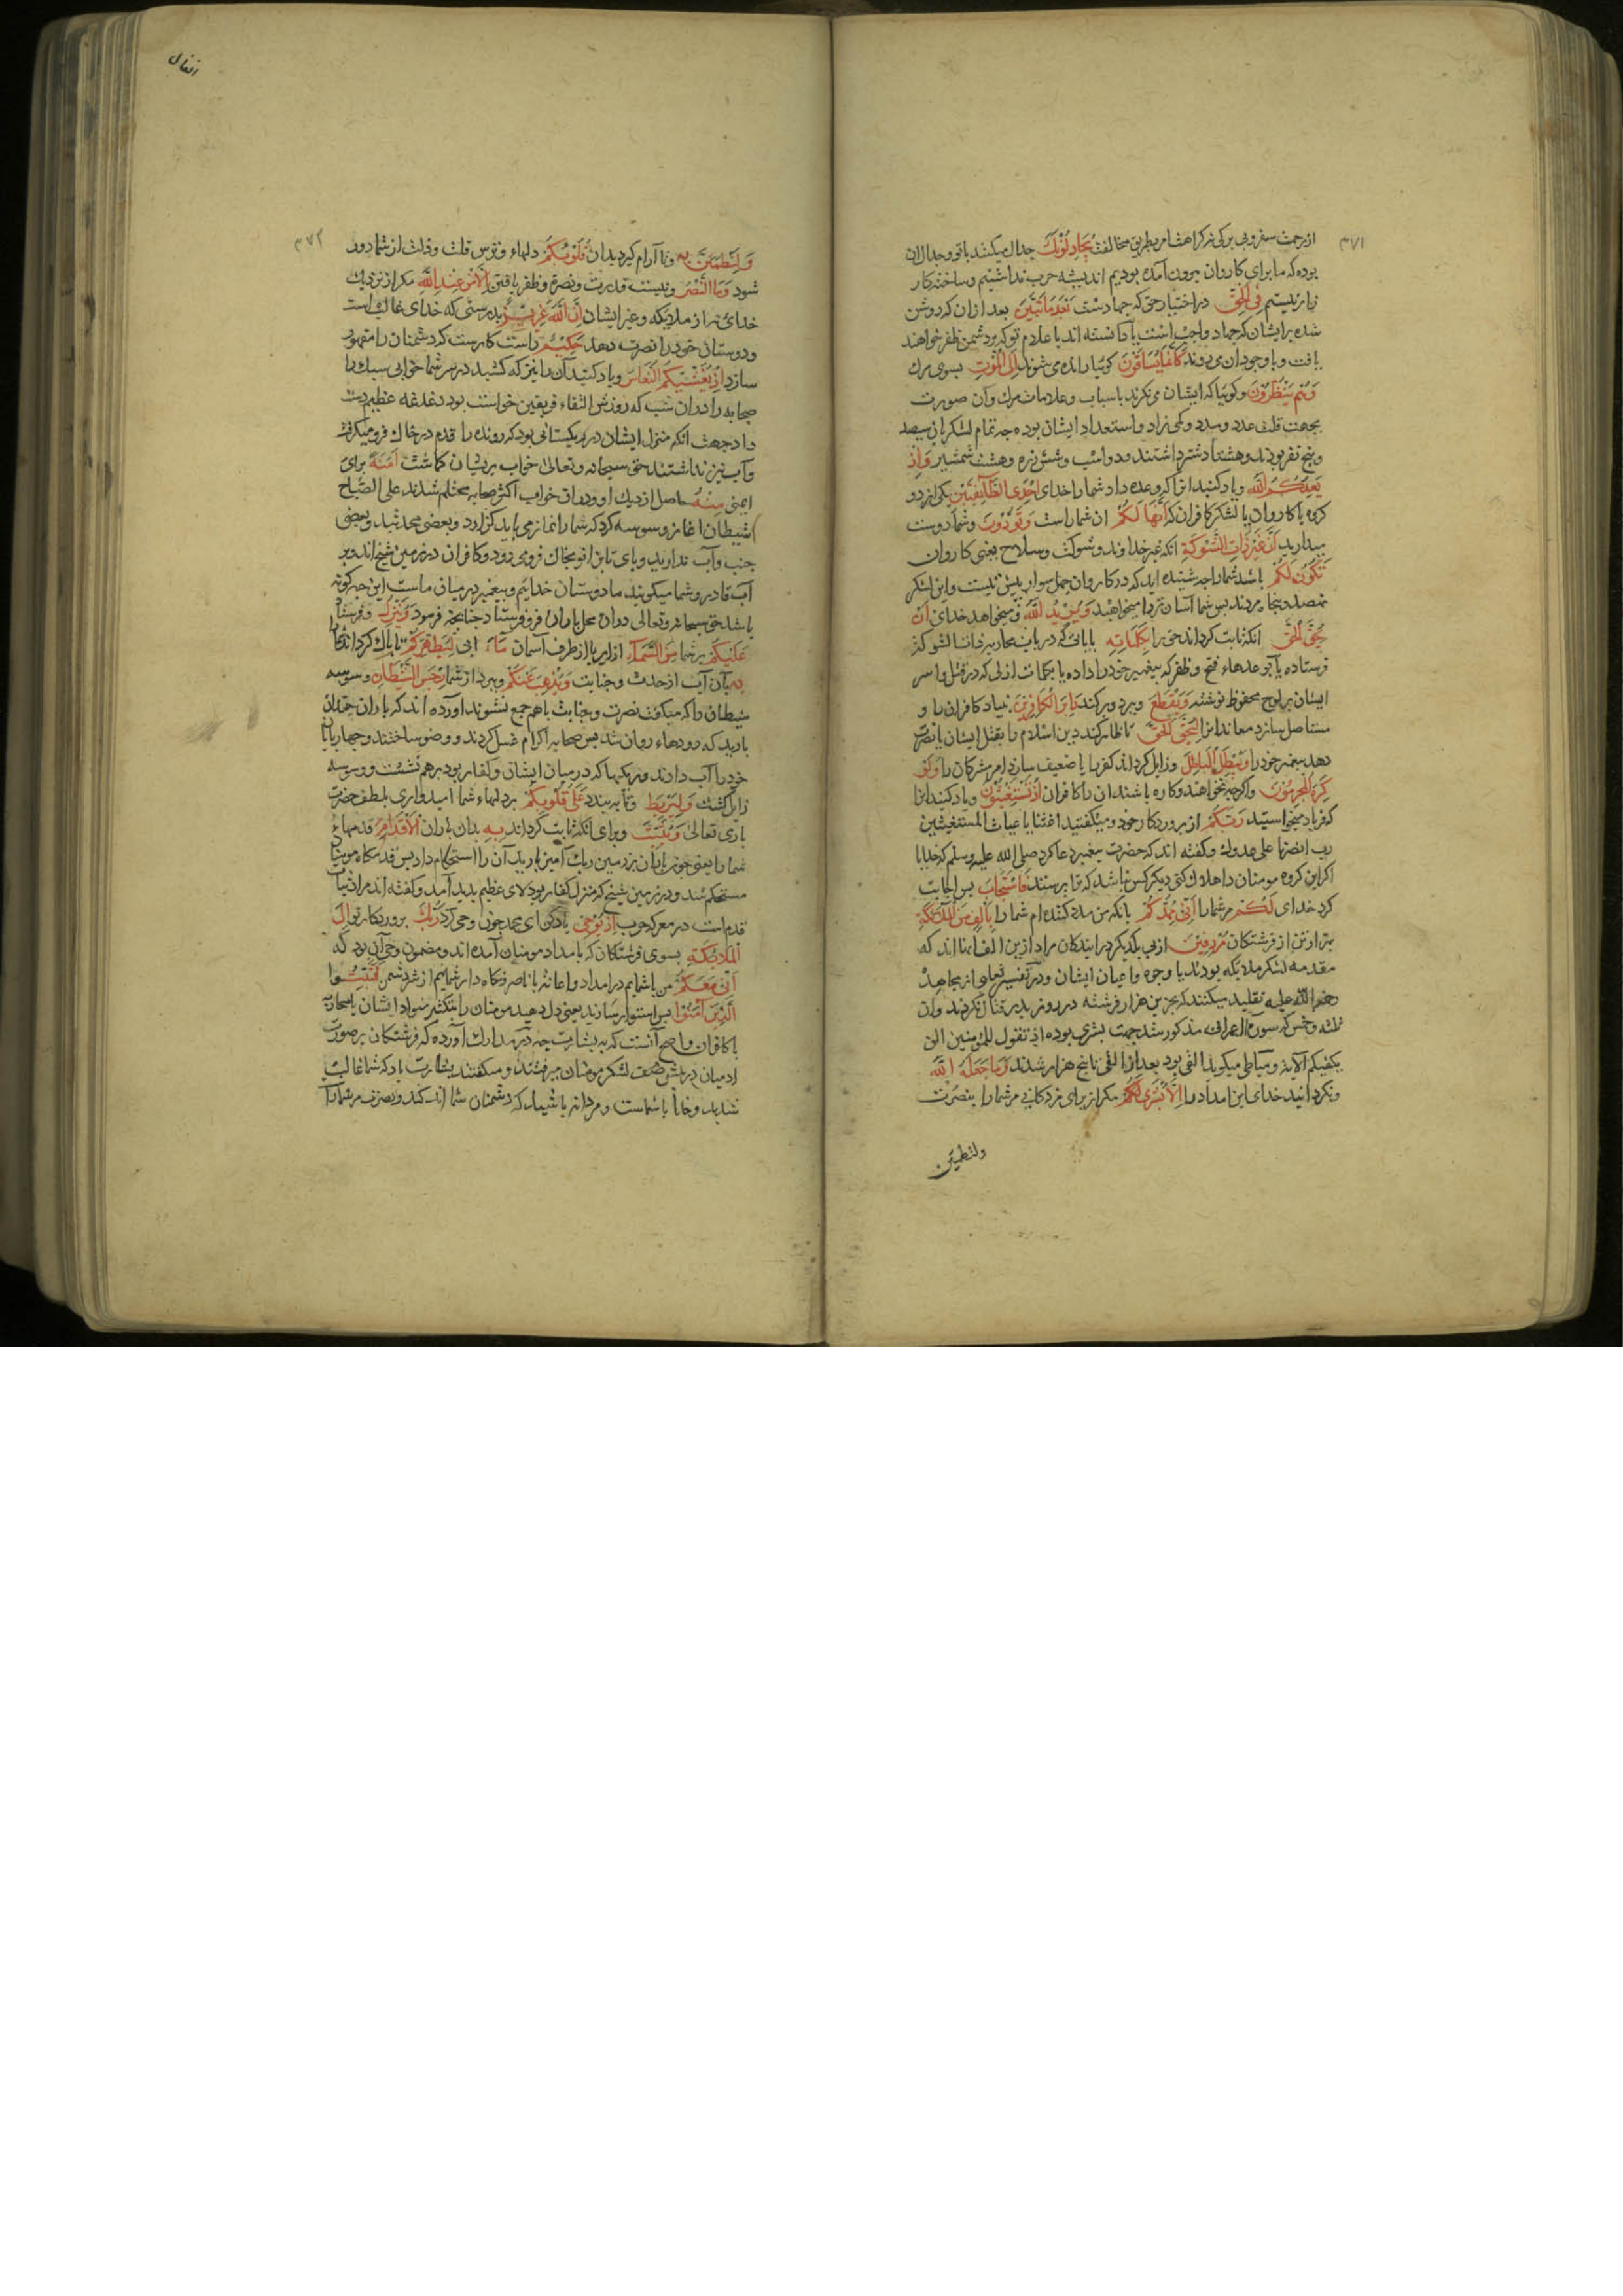 ۳۷۱
از زحمت سفر و بی برکی نه کراهت امر بطریق مخالفت یُجَادِلُونَكَ جدال میکنند با تو و جدال ان
بوده که ما برای کاروان بیرون آمده بودیم اندیشه حرب نداشتیم و ساخته کار
زار نیستیم فِی الْحَقِّ در اختیار حق که جهادست بَعْدَمَا تَبَیَّنَ بعد ازان که روشن
شده بر ایشان که جهاد واجب است یا دانسته اند با علام تو که بر دشمن ظفر خواهند
یافت و با وجود ان می روند كَأَنَّمَا یُسَاقُونَ کوئیا رانده می شوند اِلَی الْمَوْتِ بسوی مرك
وَهُمْ یَنْظُرُونَ و کوئیا که ایشان می نکرند باسباب و علامات مرك وآن صورت
بجهت قلت عدد و مدد و کمی زاد و استعداد ایشان بوده چه تمام لشکریان سیصد
و پنج نفر بودند و هفتاد شتر داشتند و دو اسب و شش زره و هشت شمشیر وَاِذْ
یَعِدُكُمُ اللهُ و یاد کنید انرا که وعده داد شما را خدای اِحْدَی الطَّائِفَتَیْنِ یکی از دو
کروه یا کاروان یا لشکر کافران که اَنَّهَا لَكُمْ ان شما راست وَتَوَدُّونَ و شما دوست
میدارید اَنَّ غَیْرَ ذَاتِ الشَّوْكَةِ انکه غیر خداوند و شوکت و سلاح یعنی کاروان
تَكُونُ لَكُمْ باشد شما را چه شنیده اید که در کاروان چهل سوار بیش نیست و این لشکر
نهصد و پنجاه مردند پس شما آسان تر را میخواهید وَیُرِیدُ اللهُ و میخواهد خدای اَنْ
یُحِقَّ الْحَقَّ انکه ثابت کرداند حق را بِكَلِمَاتِهِ بایاتی که در باب محاربه
فرستاده یا بوعدهاء فتح و ظفر که بپیغمبر خود را داده یا بکلمات ازلی که در قتل و اسر
ایشان بر لوح محفوظ نوشته وَیَقْطَعَ و ببرد و برکند دَابِرَ الْكَافِرِینَ بنیاد کافران را و
مستاصل سازد معاندانرا لِیُحِقَّ الْحَقَّ تا ظاهر کند دین اسلام را بقتل ایشان یا نصرت
دهد پیغمبر خود را وَیُبْطِلَ الْبَاطِلَ و زایل کرداند کفر را یا ضعیف سازد امر مشرکان را وَلَوْ
كَرِهَ الْمُجْرِمُونَ و اکرچه نخواهند و کاره باشند ان را کافران اِذْ تَسْتَغِیثُونَ و یاد کنید انرا
که فریاد میخواستید رَبَّكُمْ از پروردکار خود و میکفتید اغثنا یا غیاث المستغیثین
رب انصرنا علی عدوك و کفته اند که حضرت پیغمبر دعا کرد صلی الله علیه وسلم که خدایا
اکر این کروه مومنان را هلاك کنی دیکر کس نباشد که ترا پرستند فَاسْتَجَابَ پس اجابت
کرد خدای لَكُمْ مر شما را اَنِّی مُمِدُّكُمْ بانکه من مدد کننده ام شما را بِأَلْفٍ مِنَ الْمَلَائِكَةِ
بهزار تن از فرشتکان مُرْدِفِینَ از پی یکدیکر در ایندکان مراد ازین الف انها اند که
مقدمه لشکر ملایکه بودند یا وجوه و اعیان ایشان و در تفسیر از مجاهد
رضی الله علیه تقلید میکنند که بجز این هزار فرشته در روز بدر قتال نکردند و ان
ثلثه و خمس که سورة ال عمران مذکور شد جهت بشری بوده اذ تقول للمؤمنین الن
یکفیکم الایة و میکوید الفی بود بعد از الفی تا پنج هزار شدند وَمَا جَعَلَهُ اللهُ
و نکردانید خدای این امداد را اِلَّا بُشْرَی لَكُمْ مکر از برای مژدکانی مر شما را بنصرت
ولتطمین
انفال
۳۷۲
وَلِتَطْمَئِنَّ بِهِ و تا آرام کیرد بدان قُلُوبُكُمْ دلهاء و ترس قلت و ذلت از شما دور
شود وَمَا النَّصْرُ و نیست قدرت و نصرة و ظفر یافتن اِلَّا مِنْ عِنْدِ اللهِ مکر از نزدیك
خدای نه از ملایکه و غیر ایشان اِنَّ اللهَ عَزِیزٌ بدرستی که خدای غالب است
و دوستان خود را نصرت دهد حَكِیمٌ راست کارست که دشمنان را مقهور
سازد اِذْ یُغَشِّیكُمُ النُّعَاسَ و یاد کنید آن را نیز که کشید در سر شما خوابی سبك را
صحابه را دران شب که روزش التقاء فریقین خواست بود دغدغه عظیم دست
داد جهت انکه منزل ایشان در ریکستانی بود که رونده را قدم در خاك فرو میکرفت
و آب نیز نداشتند حق سبحانه و تعالی خواب بریشان کماشت اَمَنَةً برای
ایمنی مِنْهُ حاصل از نزدیك او و دران خواب اکثر صحابه محتلم شدند علی الصباح
شیطان اغاز وسوسه کرد که شما را نماز می باید کزارد و بعضی محدثید و بعضی
جنب و آب ندارید و پای تا بزانو بخاك فرو می رود و کافران در زمین شیخ اند و بر
آب قادر و شما میکوئید ما دوستان خدایم و پیغمبر در میان ماست این چه کونه
باشد حق سبحانه و تعالی دران محل باران فرو فرستاد چنانچه فرمود وَیُنَزِّلُ و فرستاد
عَلَیْكُمْ بر شما مِنَ السَّمَاءِ از ابر یا از طرف آسمان مَاءً ابی لِیُطَهِّرَكُمْ تا پاك کرداند شما را
بِهِ بآن آب از حدث و جنابت وَیُذْهِبَ عَنْكُمْ و ببرد از شما رِجْزَ الشَّیْطَانِ وسوسه
شیطان را که میکفت نصرت و جنابت با هم جمع نشوند آورده اند که باران چندان
بارید که رودهاء روان شد پس صحابه اکرام غسل کردند و وضو ساختند و چهارپایان
خود را آب دادند و ریکها که در میان ایشان و کفار بود بر هم نشست و وسوسه
زایل کشت وَلِیَرْبِطَ و تا به بندد عَلَی قُلُوبِكُمْ بر دلهاء شما امیدواری بلطف حضرت
باری تعالی وَیُثَبِّتَ و برای انکه ثابت کرداند بِهِ بدان باران الْاَقْدَامَ قدمهاء
شما را یعنی چون باران بر زمین ریك آمیز بارید آن را استحکام داد پس قدمکاه مومنان
مستحکم شد و در زمین شیخ که منزل کفار بود لای عظیم بدید آمد و کفته اند مراد ثبات
قدم است در معرکه حرب اِذْ یُوحِی یاد کن ای محمد چون وحی کرد رَبُّكَ پروردکار تو اِلَی
الْمَلَائِكَةِ بسوی فرشتکان که بامداد مومنان آمده اند و مضمون وحی آن بود که
اَنِّی مَعَكُمْ من با شمایم در امداد و اعانت یا ناصر و نکاه دار شمایم از شر دشمن فَثَبِّتُوا
الَّذِینَ آمَنُوا پس استوار سازید یعنی دل دهید مومنان را بتکثیر سواد ایشان یا محاربه
با کافران و اصح آنست که به بشارت چه در مدارك آورده که فرشتکان بر صورت
ادمیان در پیش صف لشکر مومنان میرفتند و میکفتند بشارت باد که شما غالب
شدید و خدا با شماست و مردانه باشید که دشمنان شما اندکند و نصرت مر شما را